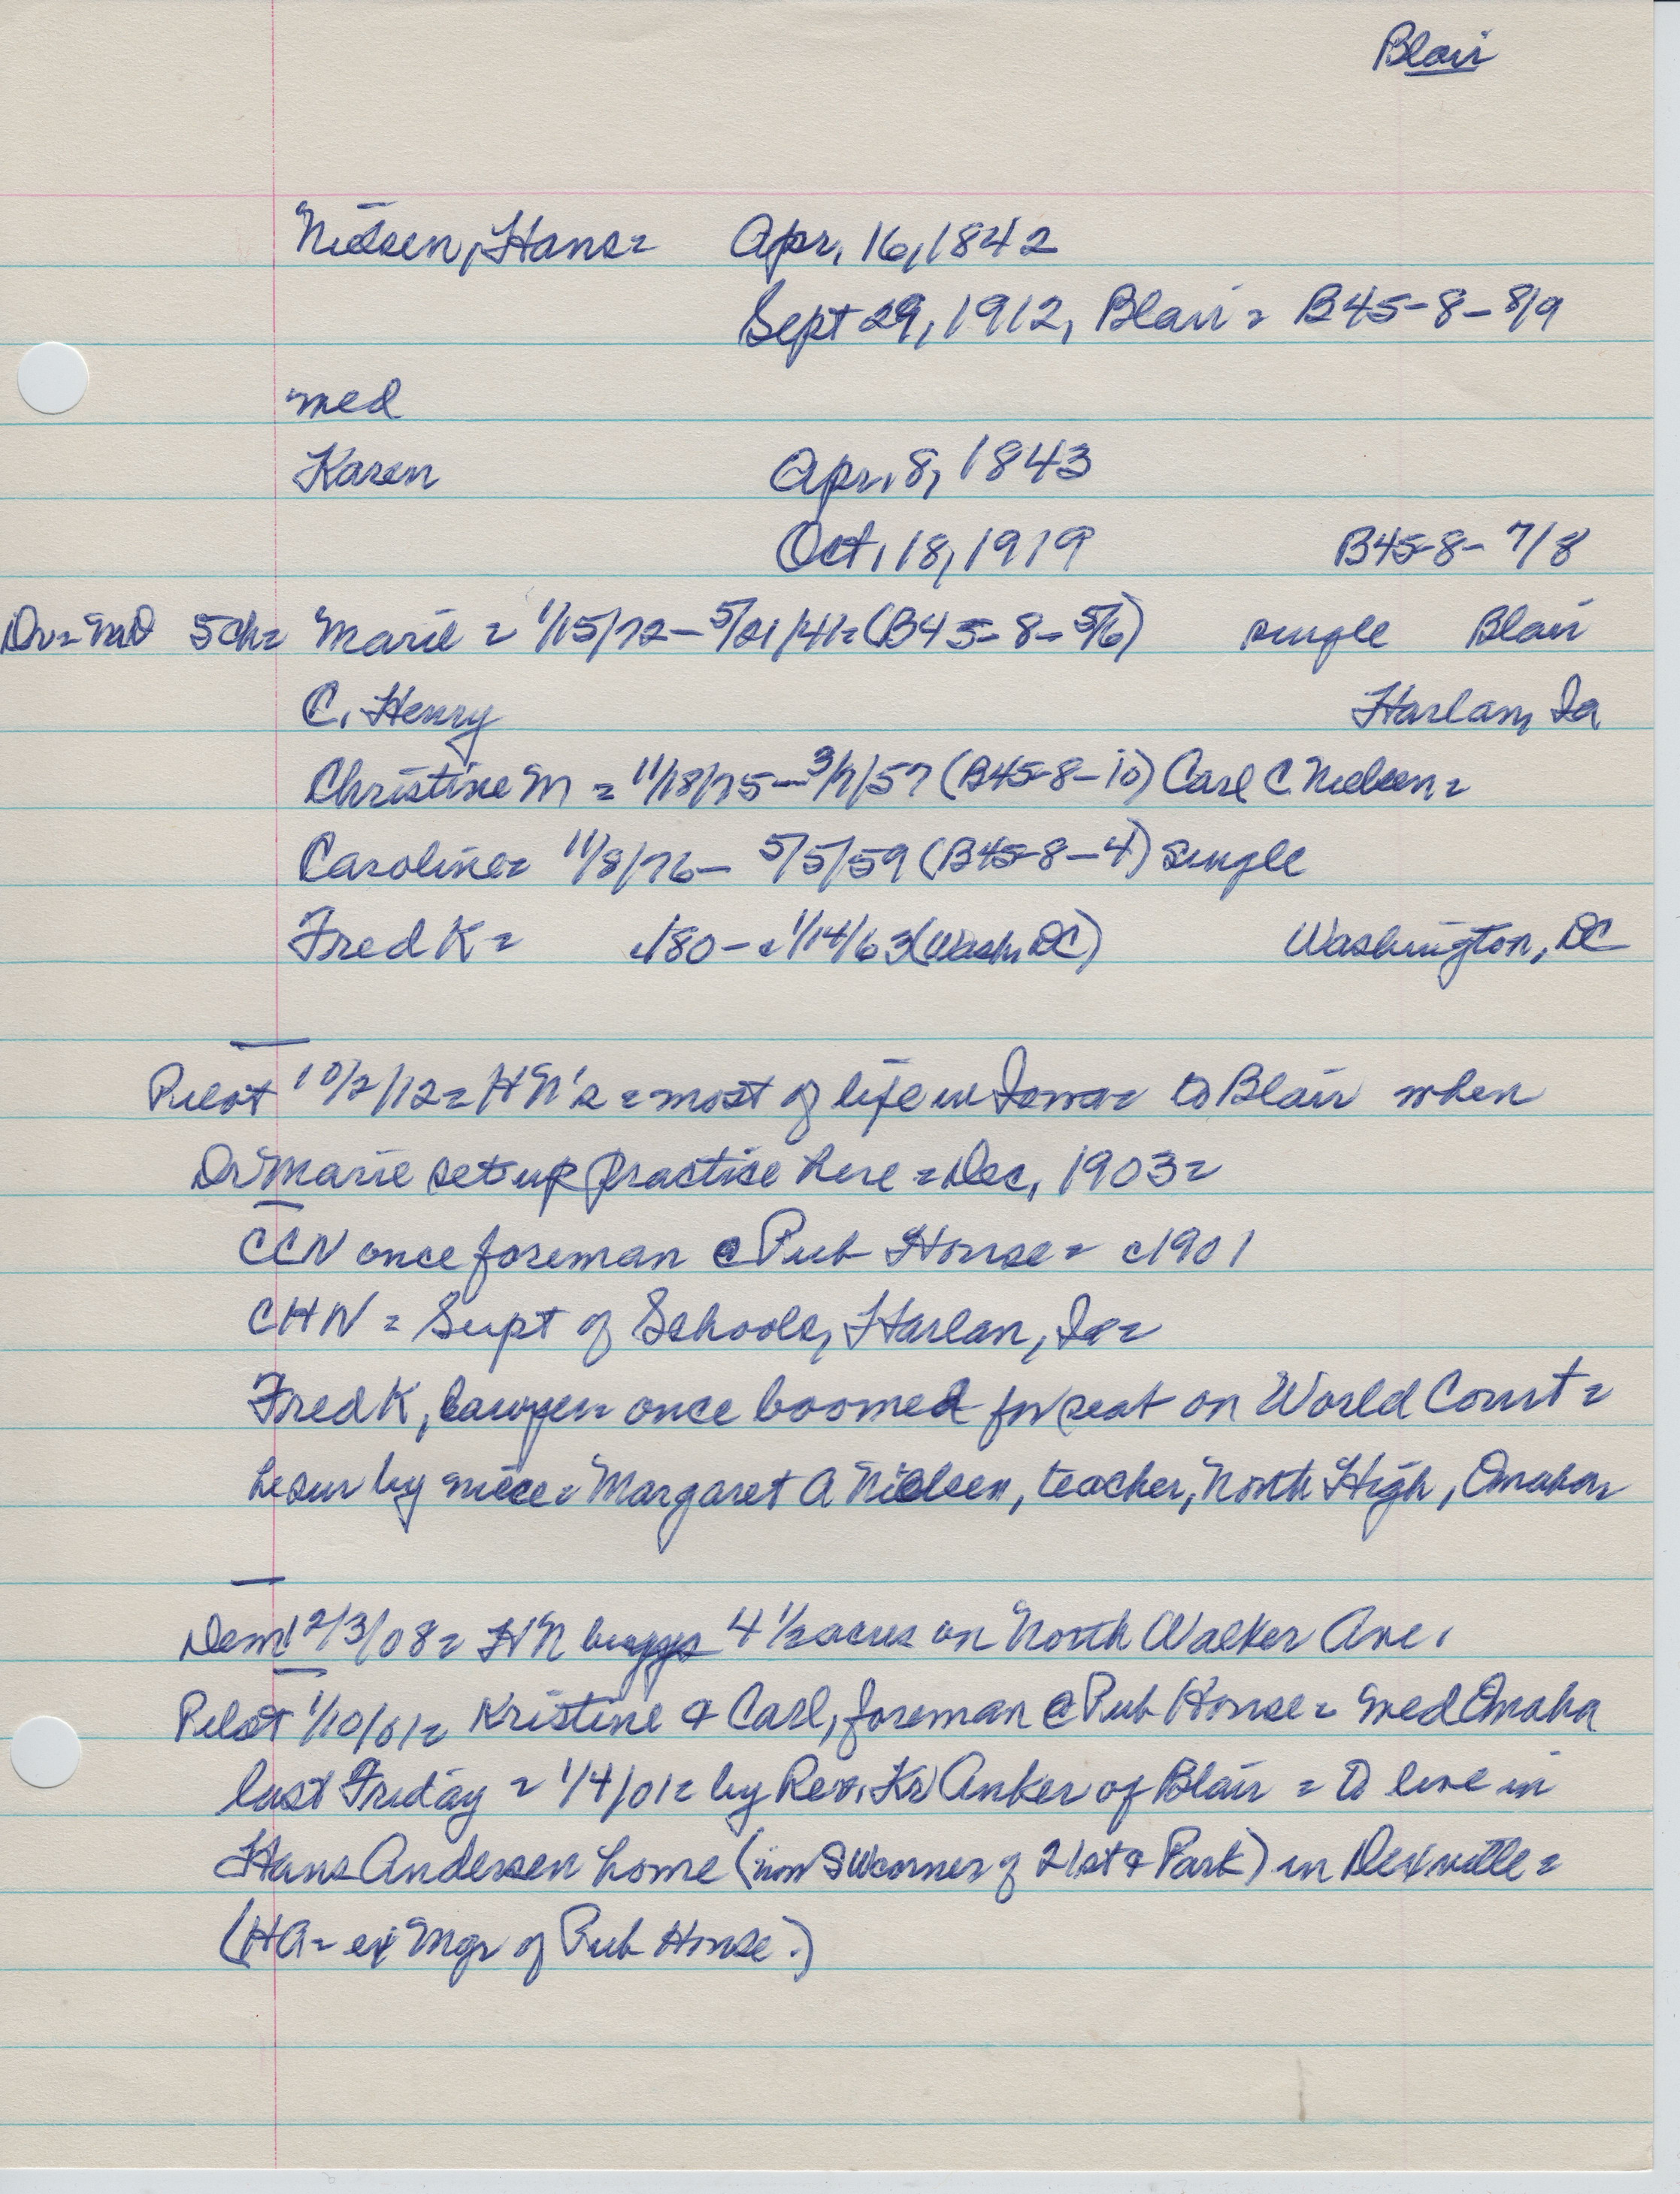 Blair
Nielsen, Hans= Apr, 16, 1842
Sept 29, 1912, Blair= B45-8-8/9
med
Karen Apr, 8, 1843
Oct, 18, 1919 B45-8-7/8
Dr=MD 5ch= Marie = 1/15/72-5/21/41=(B45-8-5/6) single Blair
C. Henry Harlan, Ia
Christine M = 11/18/75-3/7/57 (B45-8-10) Carl C Nielsen=
Caroline= 11/8/76- 5/5/59 (B45-8-4) single
Fred K= c180-c1/14/63(Wash, DC) Washington, DC
Pilot 10/2/12= HN's=most of life in Iowa= to Blair when
Dr Marie set up practice here=Dec, 1903=
CCN once foreman @ Pub House= c1901
CHN = Supt of Schools, Harlan, Ia=
Fred K, lawyer= once boomed for seat on World Court=
he sur by niece=Margaret A Nielsen, teacher, North High, Omaha=
Dem 12/3/08= HN buys 4 1/2 acres on North Walker Ave.
Pilot 1/10/01= Kristine & Carl, foreman @ Pub House= med Omaha
last Friday = 1/4/01= by Rev. Kr Anker of Blair = to live in
Hans Andersen home (now SW corner of 21st & Park) in Dexville=
(HA= ex Mgr of Pub House.)